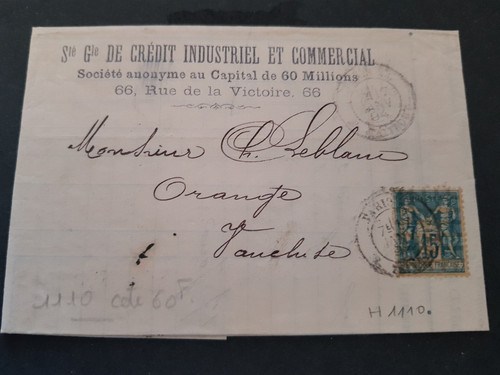 Sté Gle DE CRÉDIT INDUSTRIEL ET COMMERCIAL
Société anonyme au Capital de 60 Millions
66, Rue de la Victoire, 66
Monsieur Leblanc
Orange
Vaucluse
PARIS
15
1110 cote 60F
H 1110.